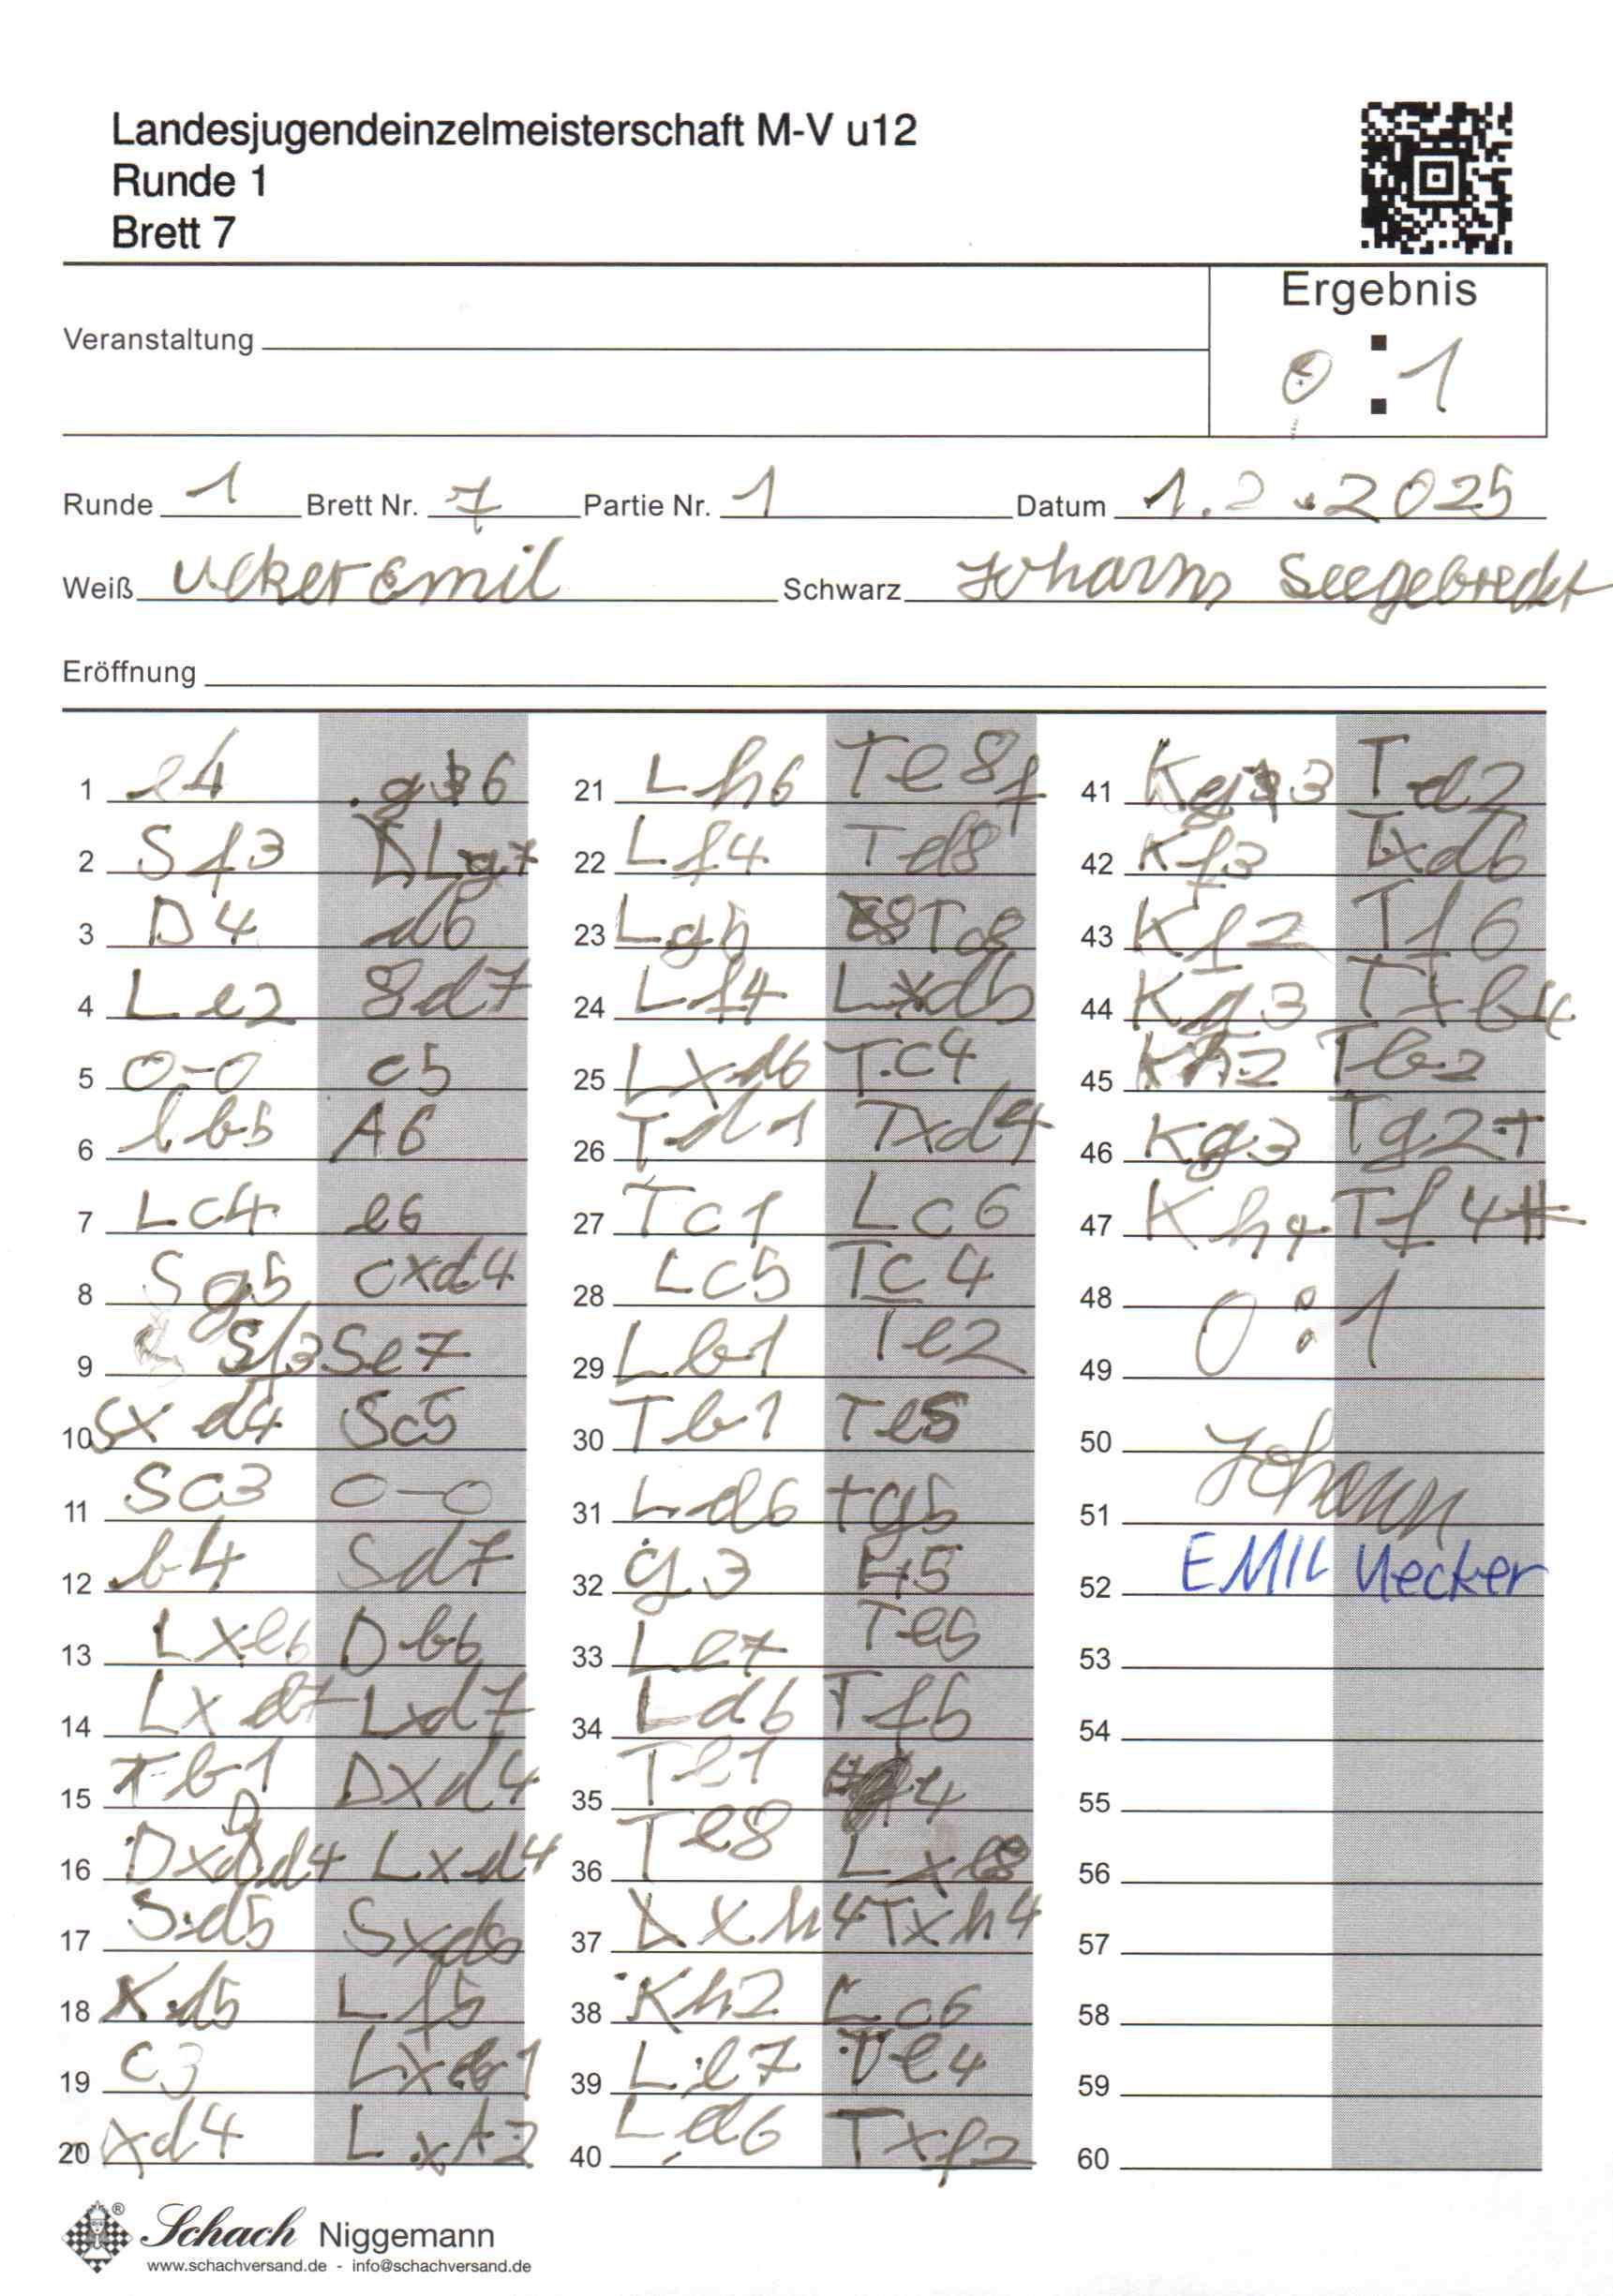 Landesjugendeinzelmeisterschaft M-V u12
Runde 1
Brett 7
Ergebnis
0 : 1
Veranstaltung
Runde 1 Brett Nr. 7 Partie Nr. 1 Datum 1.2.2025
Weiß Ucker Emil Schwarz Johann Seegebrecht
Eröffnung
1 e4 g6
2 Sf3 Lg7
3 D4 d6
4 Le2 Sd7
5 0-0 c5
6 Lb5 A6
7 Lc4 e6
8 Sg5 cxd4
9 Sf3 Se7
10 Sxd4 Sc5
11 Sc3 0-0
12 b4 Sd7
13 Lxe6 Db6
14 Lxd7 Lxd7
15 Tb1 Dxd4
16 DxDd4 Lxd4
17 Sd5 Sxd5
18 Xd5 Lf5
19 c3 Lxb1
20 xd4 LxA2
21 Lh6 Te8
22 Lf4 Td8
23 Lg5 Tc8
24 Lf4 Lxd5
25 Lxd6 Tc4
26 Td1 Txd4
27 Tc1 Lc6
28 Lc5 Tc4
29 Lb1 Te2
30 Tb1 Te5
31 Ld6 tg5
32 g3 H5
33 Le7 Te5
34 Ld6 Tf5
35 Te1 4
36 Te8 Lxe8
37 Xh4 Txh4
38 Kh2 Lc6
39 Le7 Te4
40 Ld6 Txf2
41 Kg3 Td2
42 Kf3 Txd6
43 Kf2 Tf6
44 Kg3 Txb4
45 Kh2 Tb2
46 Kg3 Tg2+
47 Kh4 Tf4#
48 0 : 1
49
50 Johann
51
52 EMIL Uecker
53
54
55
56
57
58
59
60
Schach Niggemann
www.schachversand.de - info@schachversand.de